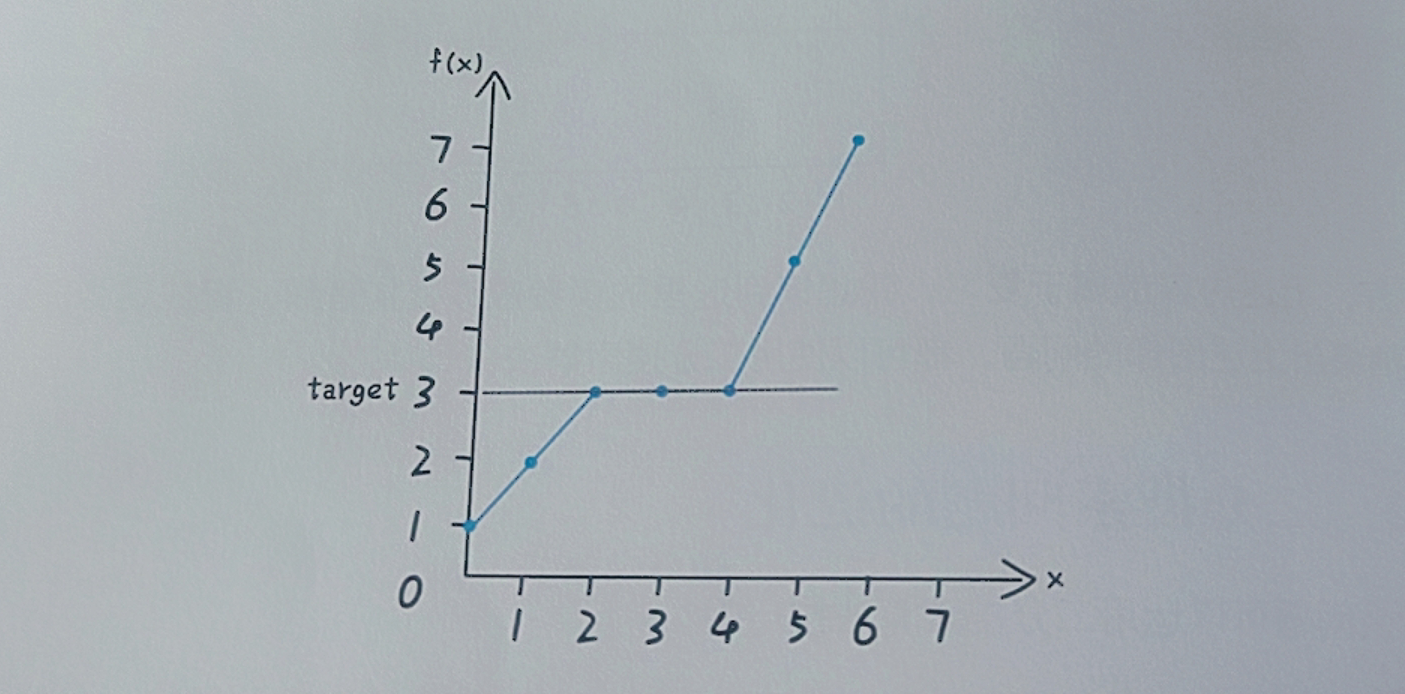 f(x)
7
6
5
4
target 3
2
1
0
1 2 3 4 5 6 7 x